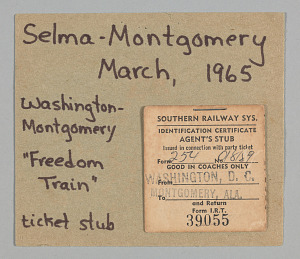 Selma-Montgomery
March, 1965
Washington-
Montgomery
"Freedom
Train"
ticket stub
SOUTHERN RAILWAY SYS.
IDENTIFICATION CERTIFICATE
AGENT'S STUB
Issued in connection with party ticket
Form 254 No.
GOOD IN COACHES ONLY
From WASHINGTON, D. C.
To MONTGOMERY, ALA.
and Return
Form I.R.T.
39055